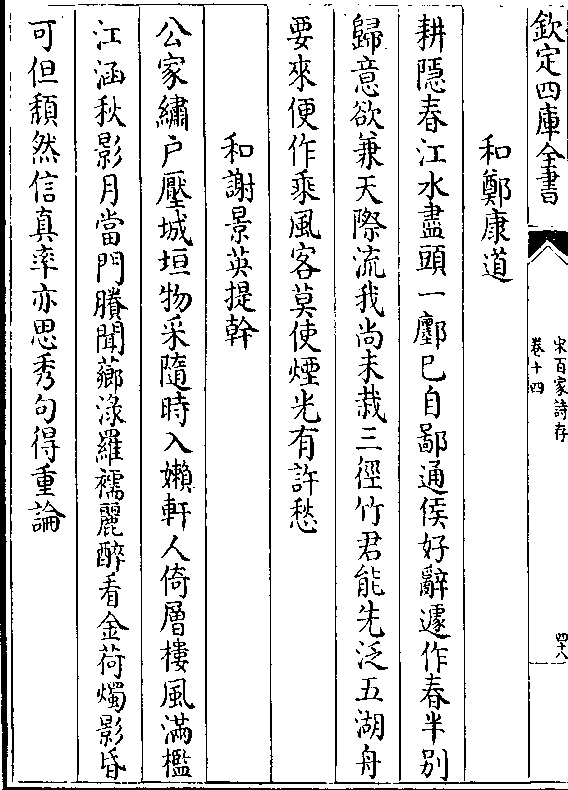 欽定四庫全書
宋百家詩存
卷十四
四十八
和鄭康道
耕隱春江水盡頭一㕓已自鄙通侯好辭遽作春半别
歸意欲兼天際流我尚未栽三徑竹君能先泛五湖舟
要來便作乘風客莫使煙光有許愁
和謝景英提幹
公家繡户壓城垣物采隨時入嬾軒人倚層樓風滿檻
江涵秋影月當門賸聞薌澤羅襦麗醉看金荷燭影昏
可但頽然信真率亦思秀句得重論